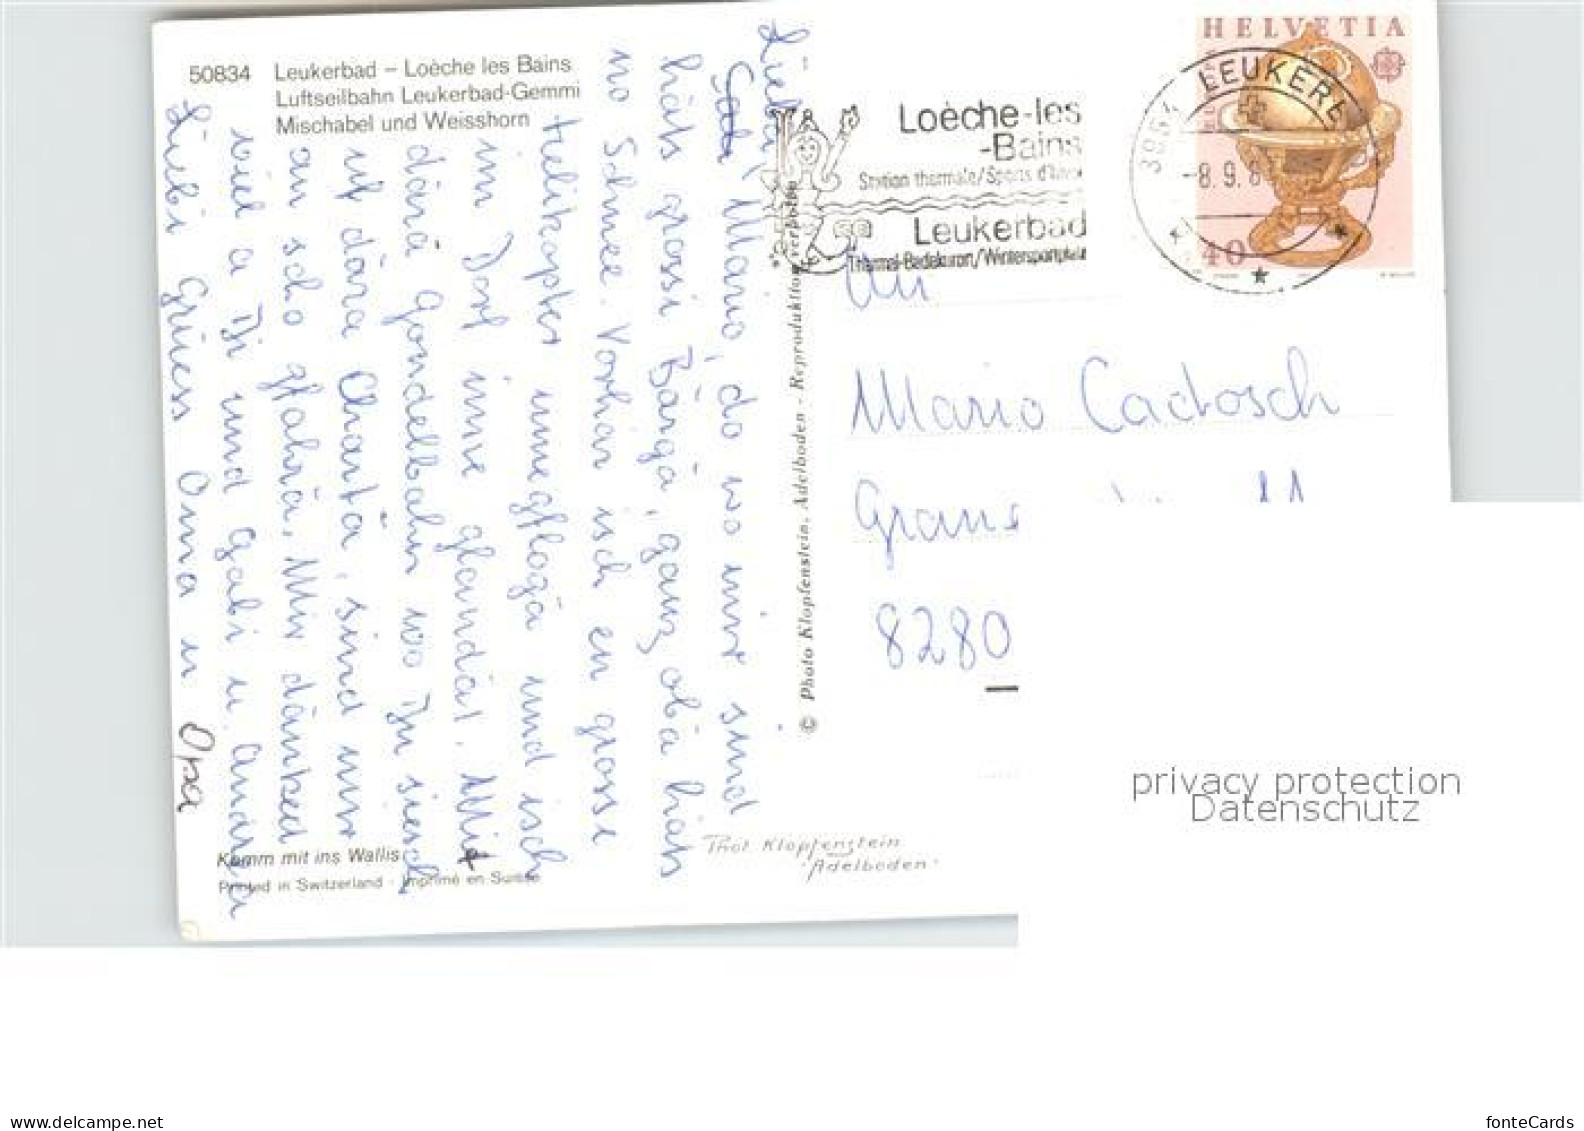 50834 Leukerbad – Loèche les Bains
Luftseilbahn Leukerbad-Gemmi
Mischabel und Weisshorn
Liebä Mario, do wo mir sind
häts grossi Bärgä, ganz obä häts
no Schnee. Vorhär isch en grosse
Helikopter umegflogä und isch
im Dorf inne glandät. Mit
därä Gondelbahn wo Du siesch
uf dära Chartä, sind mir
au scho gfahrä. Mir dänked
viel a Di und Gabi u. Andrea
Liebi Grüess Oma u Opa
Komm mit ins Wallis
Printed in Switzerland - Imprimé en Suisse
© Photo Klopfenstein, Adelboden - Reproduktion verboten
Phot. Klopfenstein
Adelboden
Loèche-les
-Bains
Station thermale/Sports d'hiver
Leukerbad
Thermal-Badekurort/Wintersportplatz
HELVETIA
40
LEUKERB
-8.9.8
An
Mario Cadosch
11
8280
privacy protection
Datenschutz
www.delcampe.net
fonteCards